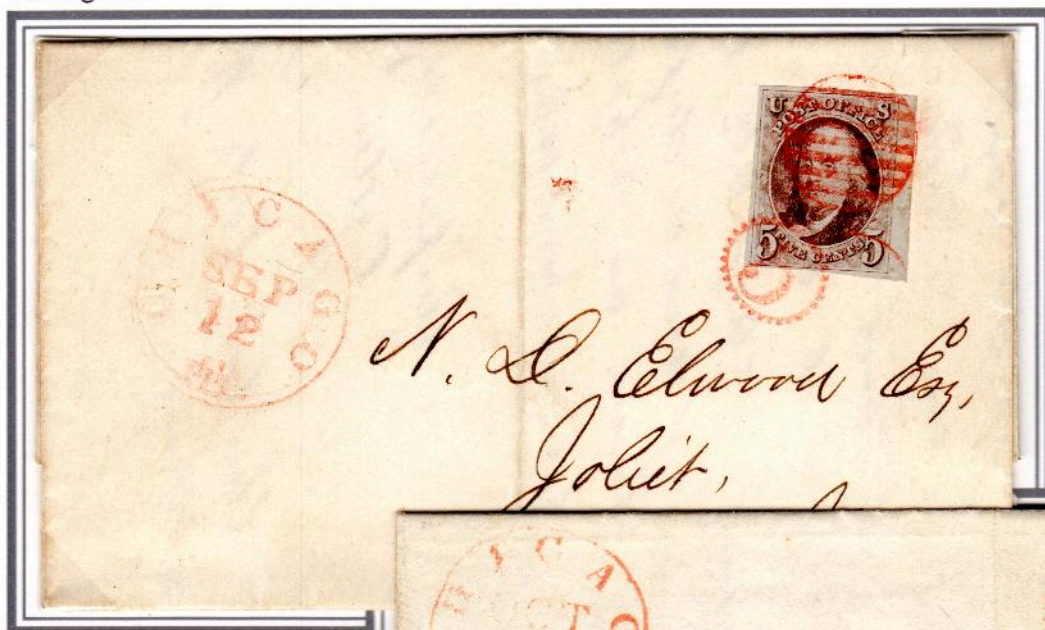 CHICAGO
SEP
12
U S
POST OFFICE
5 FIVE CENTS 5
5
N. D. Elwood Esq,
Joliet,